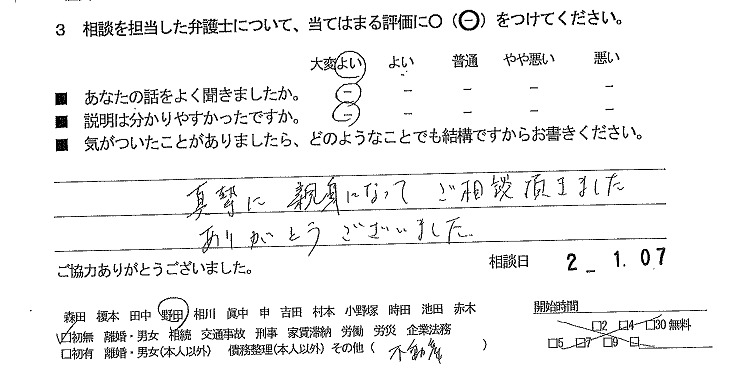 3 相談を担当した弁護士について、当てはまる評価に○（㊀）をつけてください。
大変よい よい 普通 やや悪い 悪い
■ あなたの話をよく聞きましたか。 － － － － －
■ 説明は分かりやすかったですか。 － － － － －
■ 気がついたことがありましたら、どのようなことでも結構ですからお書きください。
真摯に 親身になって ご相談頂きました
ありがとうございました.
ご協力ありがとうございました。 相談日 2_1.07
森田 榎本 田中 野田 相川 眞中 申 吉田 村本 小野塚 時田 池田 赤木 開始時間
□初無 離婚・男女 相続 交通事故 刑事 家賃滞納 労働 労災 企業法務 □2 □4 □30無料
□初有 離婚・男女(本人以外) 債務整理(本人以外) その他（ 不動産 ） □5 □7 □9 □